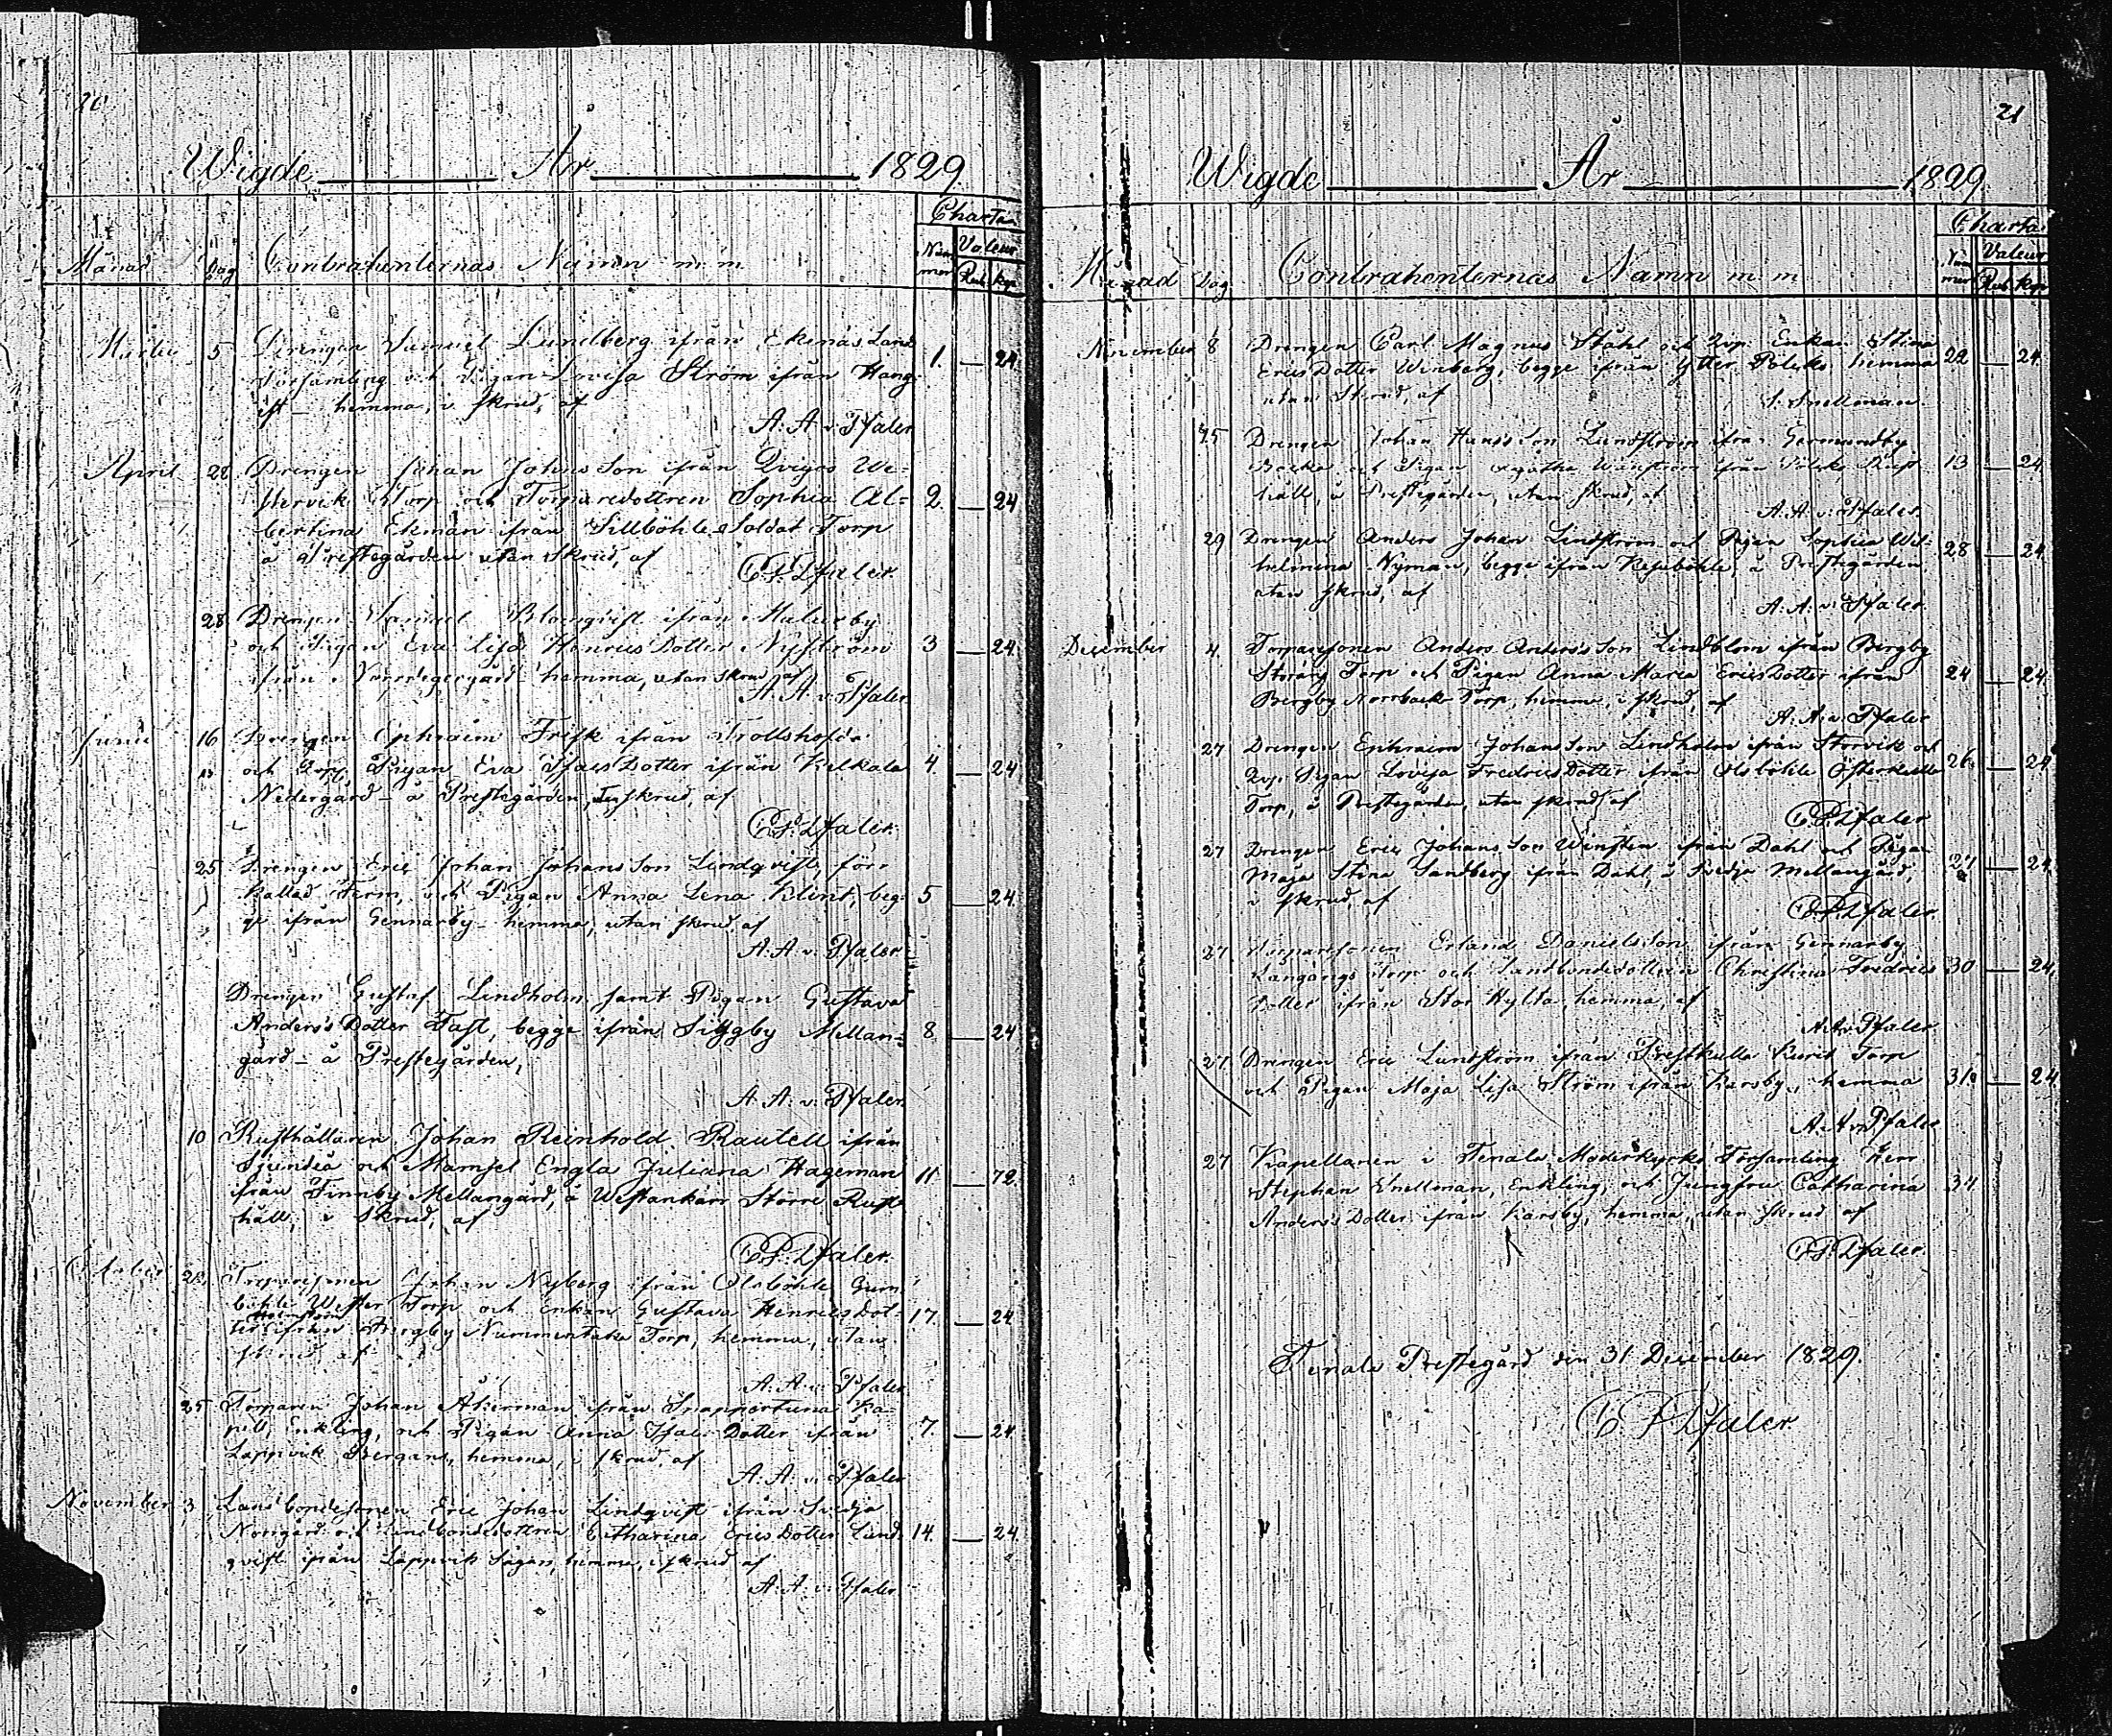 20
Wigde År 1829
Charta
Månad Dag Contrahenternas Namn m m Num mer Valeur Rub. Kop.
Martii 5 Drengen Samuel Lundberg ifrån Ekenäs Land
Församling och Pigan Lovisa Ström ifrån Hang- 1. — 24
hemma, i skrud, af
A. A. v. Pfaler
April 28 Drengen Johan Johans Son ifrån
Torp och Torparedottren Sophia Al= 2. — 24
bertina Ekman ifrån Sillböhle Soldat Torp
a Prestegården utan Skrud, af
C P. Pfaler.
28 Drengen Samuel Blomqvist ifrån Malarby
och Pigan Eva Lisa Henrics Dotter Nyström 3 — 24
ifrån hemma, utan skrud af
A. A. v. Pfaler
Junii 16 Drengen Ephraim Frisk ifrån Trollshofda
och Qvp. Pigan Eva Isacs Dotter ifrån Kelkala 4. — 24
Nedergård - a Prestegården, skrud, af
C P. Pfaler.
25 Drengen Eric Johan Johans Son Lindqvist, förr
kallad Ferm, och Pigan Anna Lena Klint, beg= 5 — 24
ge ifrån Gennarby - hemma, utan skrud, af
A. A. v. Pfaler
Drengen Gustaf Lindholm samt Pigan Gustava
Anders's Dotter Fast, begge ifrån Siggby Mellan= 8 — 24
gård - å Prestegården,
A. A. v. Pfaler.
10 Rusthållaren Johan Reinhold Rautell ifrån
Sjundeå och Mamsel Engla Juliana Hageman 11 — 72
ifrån Finnby Mellangård, å Westankärr Störra Rust=
håll, i Skrud, af
C P. Pfaler.
October 28 Torparesonen Johan Nyberg ifrån Olsböhle Gum
böhle Wester Torp och Enkan Gustava Henrics Dot= 17. — 24
ter ifrån Bergby Nummentaka Torp, hemma, utan
skrud af
A. A. v. Pfaler
25 Torparen Johan Åkerman ifrån Snappertuna Ka=
pell, Enkling, och Pigan Anna Isacs Dotter ifrån 7. — 24
Lappvik Bergans, hemma, i skrud, af
A. A. v. Pfaler
November 3 Landbondesonen Eric Johan Lindqvist ifrån Svedja
Norrgård och Landbondedottren Catharina Erics Dotter Lind= 14. — 24
qvist ifrån Lappvik Sågars, hemma, i skrud, af
A. A. v. Pfaler
21
Wigde År 1829
Charta
Månad Dag Contrahenternas Namn m m Num mer Valeur Rub Kop
November 8 Drengen Carl Magnus Ståhl och Qvp. Enkan Stina
Erics Dotter Winberg, begge ifrån Ytter Pölsko, hemma 22 — 24
utan Skrud, af
S. Snellman
15 Drengen Johan Hans's Son Lundström ifrån Germundby
Backa och Pigan Agatha Wänström ifrån Pölsko Rust 13 — 24
håll, å Prestegården, utan skrud, af
A. A. v. Pfaler.
29 Drengen Anders Johan Lindström och Pigan Sophia Wil=
helmina Nyman, begge ifrån Kejsböhle, å Prestegården 28 — 24
utan skrud, af
A. A. v. Pfaler.
December 4. Torparesonen Anders Anders's Son Lindblom ifrån Bergby
Storäng Torp och Pigan Anna Maria Erics Dotter ifrån 24 — 24
Bergby Norrbacka Torp, hemma, i skrud, af
A. A. v. Pfaler
27 Drengen Ephraim Johans Son Lindholm ifrån Storvik och
Qvp. Pigan Lovisa Fredrics Dotter ifrån Olsböhle Österkulla 26. — 24
Torp, å Prestegården, utan skrud af
C. P. Pfaler
27 Drengen Eric Johans Son Winsten ifrån Dahl och Pigan
Maja Stina Sandberg ifrån Dahl, å Svedja Mellangård, 27 — 24
i skrud, af
C P. Pfaler.
27 Torparesonen Erland Daniels Son ifrån Gennarby
Langängs Torp och Landbondedottren Christina Fredrics 30 — 24.
Dotter ifrån Stor Hylta, hemma, af
A. A. v. Pfaler
27 Drengen Eric Lundström ifrån Prestkulla Torp
och Pigan Maja Lisa Ström ifrån Karsby, hemma 31. — 24
A. A. v. Pfaler
27 Kapellanen i Tenala Moderkyrko Församling Herr
Stephan Snellman, Enkling, och Jungfru Catharina 34
Anders's Dotter ifrån Karsby, hemma, utan skrud af
C P. Pfaler.
Tenala Prestegård den 31 December 1829.
C P Pfaler